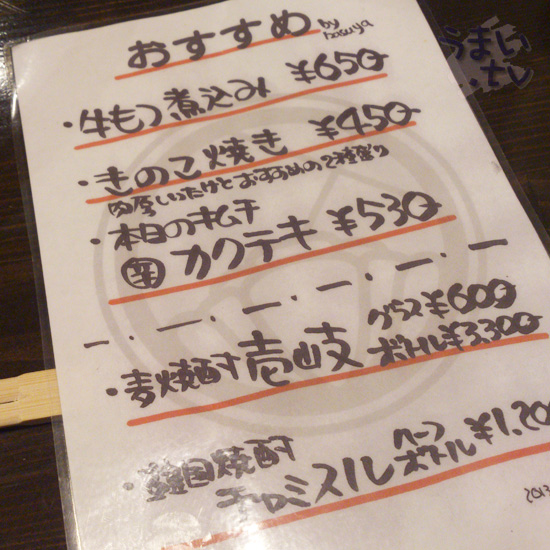 おすすめ
by
うまい
.tv
・牛もつ煮込み ¥650
・きのこ焼き ¥450
肉厚しいたけとおすすめの2種盛り
・本日のキムチ
辛 カクテキ ¥530
・麦焼酎 壱岐 グラス¥600
ボトル¥3,300
・韓国焼酎
ハーフ
ボトル ¥1,20
2013